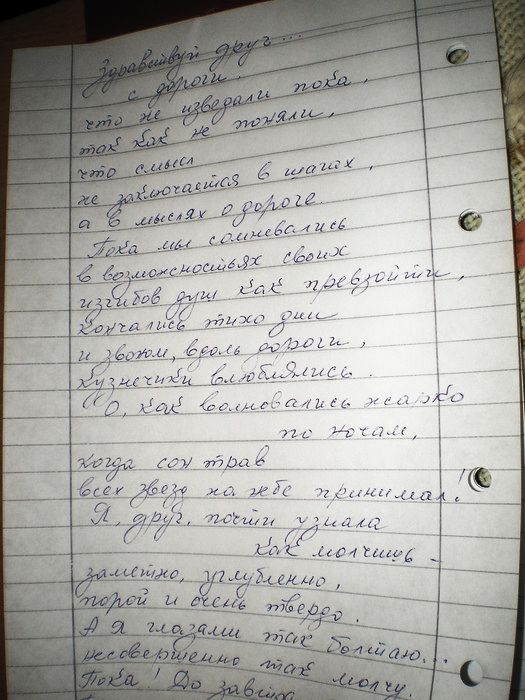 Здравствуй друг...
с дороги.
что не изведали пока,
так как не поняли,
что смысл
не заключается в шагах,
а в мыслях о дороге.
Пока мы сомневались
в возможностьях своих
изгибов душ как превзойти,
кончались тихо дни
и звоном, вдоль дороги,
кузнечики влюблялись.
О, как волновались жарко
по ночам,
когда сон трав
всех звезд на небе принимал!
Я, друг, почти узнала
как молчишь –
заметно, углубленно,
порой и очень твердо.
А я глазами так болтаю...
несовершенно так молчу.
Пока! До завтра